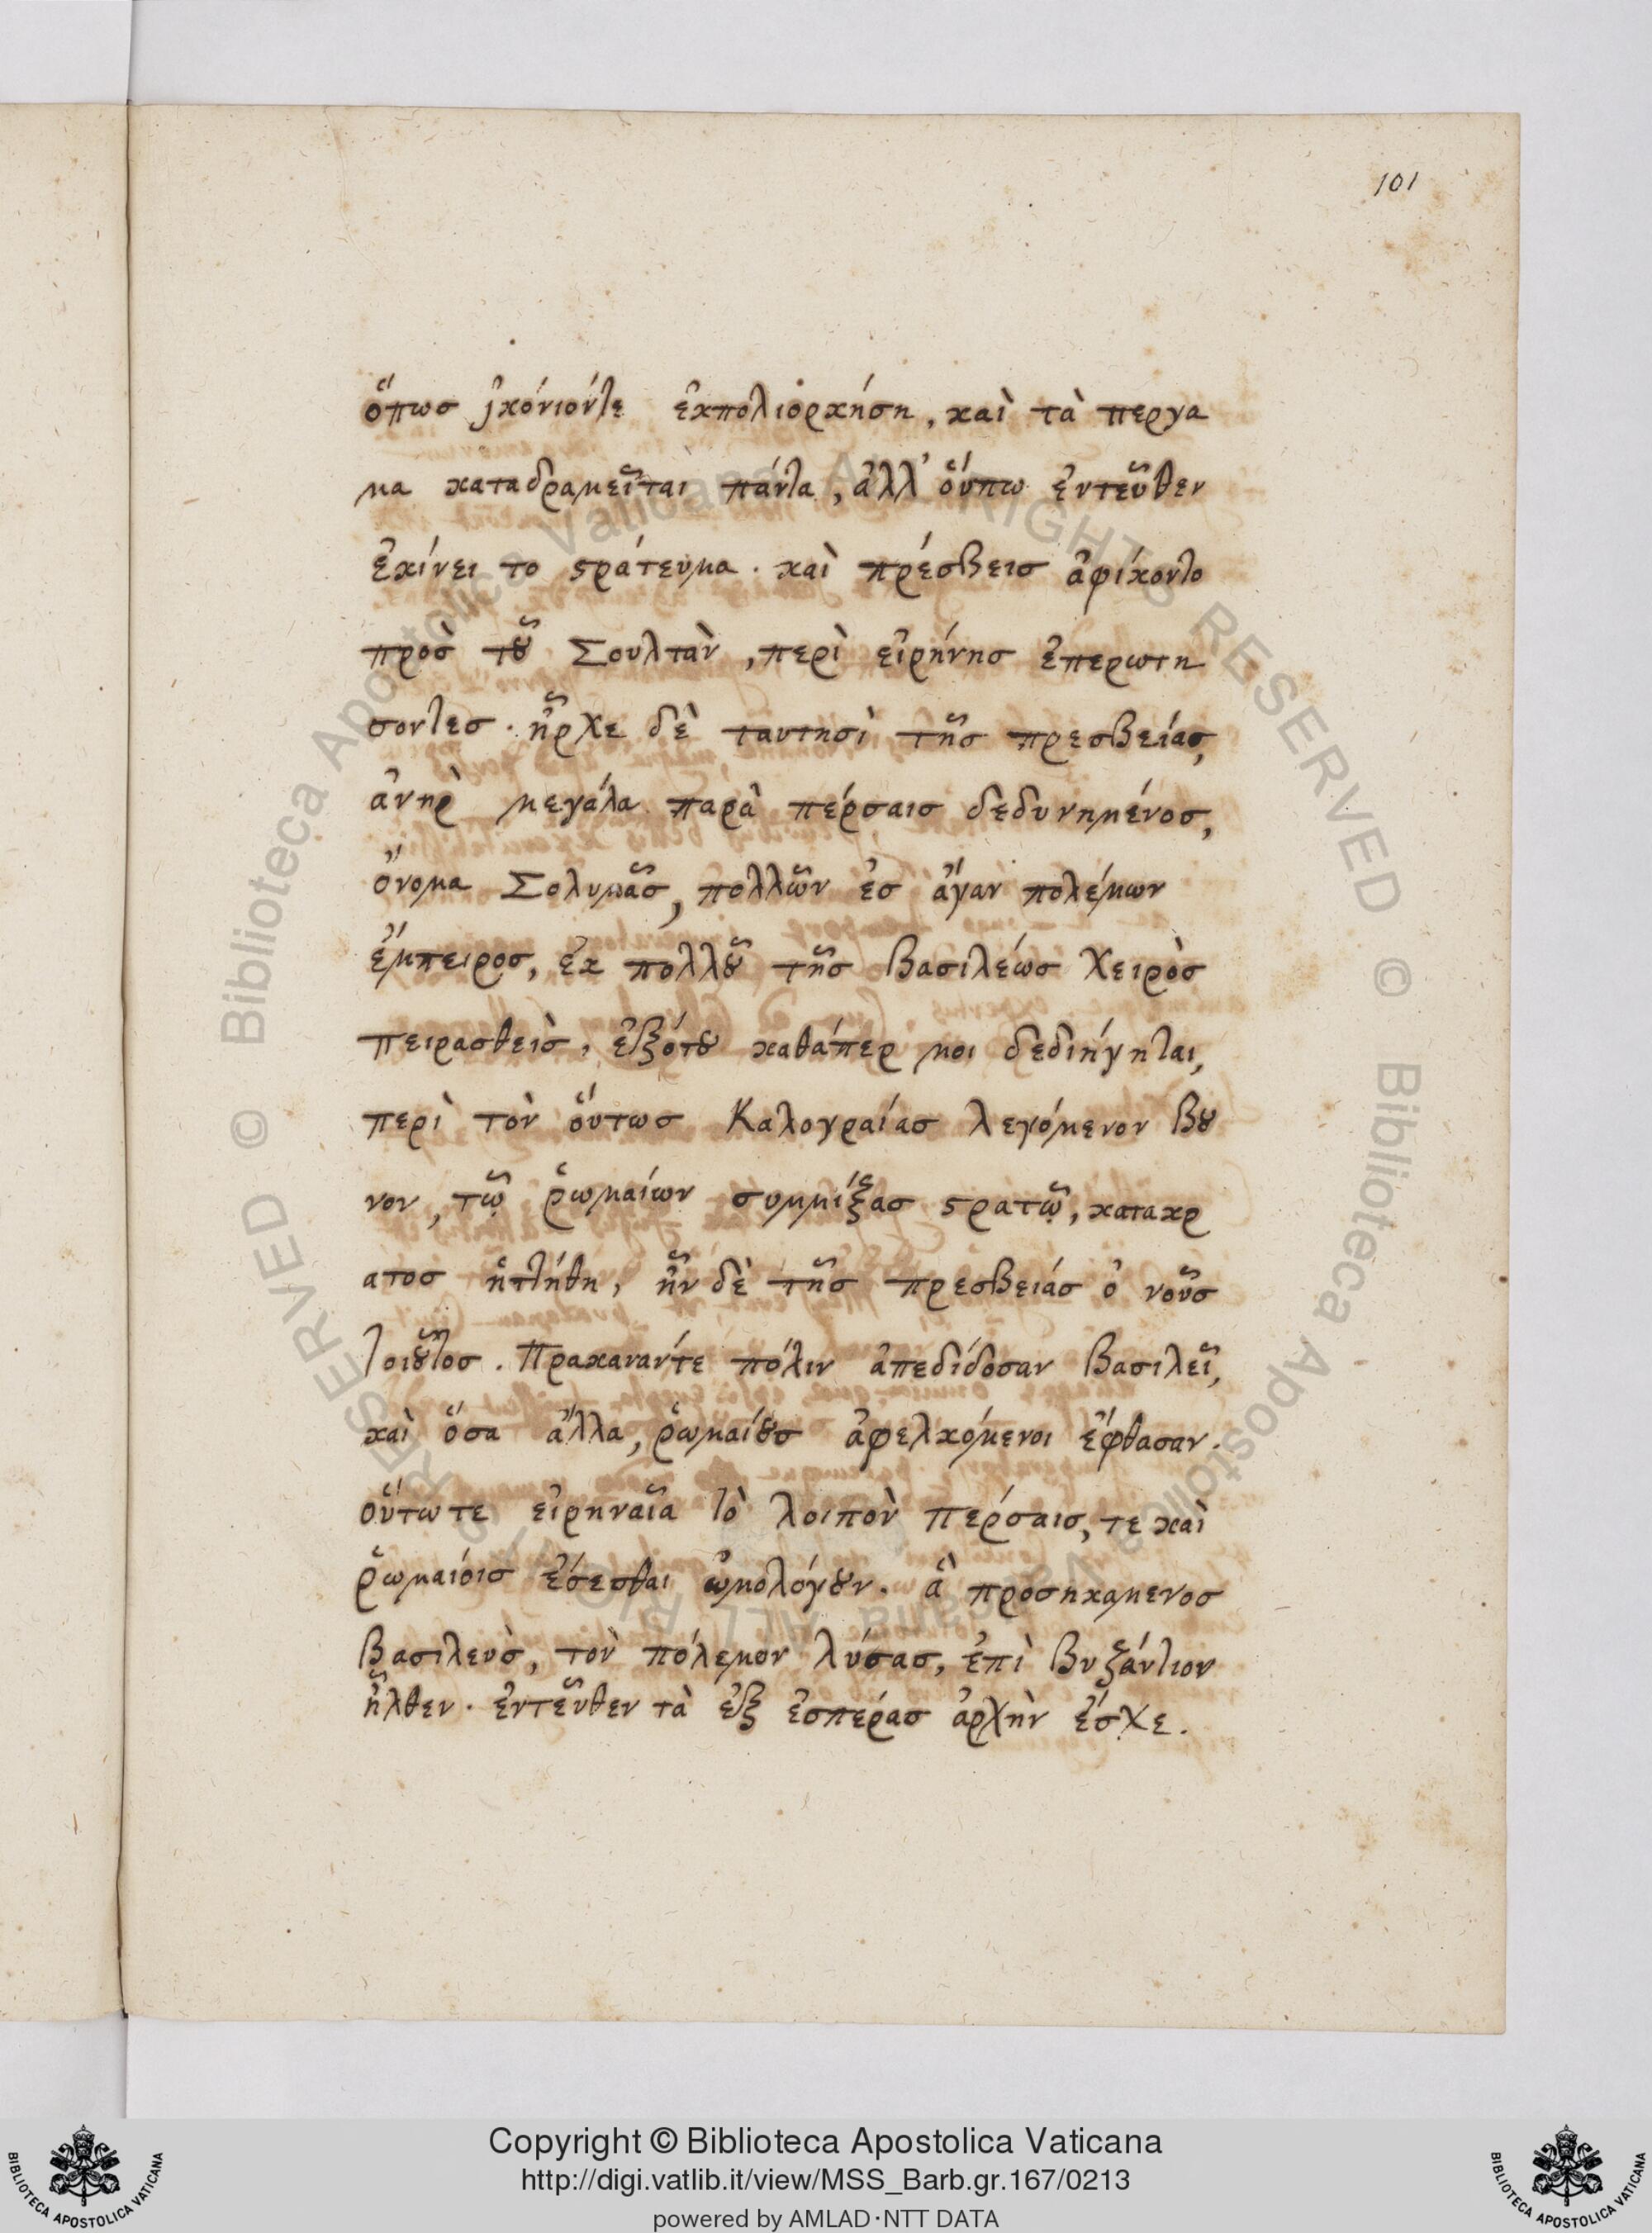 101
ὅπωσ ἰκόνιόντε ἐκπολιορκήση, καὶ τὰ περγα
μα καταδραμεῖται πάντα, ἀλλ' οὔπω ἐντεῦθεν
ἐκίνει το ϛράτευμα. καὶ πρέσβεισ ἀφίκοντο
πρὸσ τȣ͂ Σουλτὰν, περὶ εἰρήνησ ἐπερωτη
σοντεσ. ἦρχε δὲ ταυτησὶ τῆσ πρεσβείασ,
ἀνηρ μεγάλα παρὰ πέρσαισ δεδυνημένοσ,
ὄνομα Σολυμᾶσ, πολλῶν ἐσ ἄγαν πολέμων
ἔμπειροσ, ἐκ πολλȣ͂ τῆσ βασιλέωσ χειρὸσ
πειρασθεὶσ, ἐξότȣ καθάπερ μοι δεδιήγηται,
περὶ τὸν ὅυτωσ Καλογραίασ λεγόμενον βȣ
νον, τῷ ῥωμαίων συμμίξασ ϛρατῷ, κατακρ
ατοσ ἡττήθη, ἦν δὲ τῆσ πρεσβειάσ ὁ νοῦσ
τοιȣ͂τοσ. Πρακανάντε πόλιν ἀπεδίδοσαν βασιλεῖ,
καὶ ὅσα ἄλλα, ῥωμαίȣσ ἀφελκόμενοι ἔφθασαν.
οὕτωτε εἰρηναῖα τὸ λοιπὸν πέρσαισ, τε καὶ
ῥωμαίοισ ἔσεσθαι ὡμολόγȣν. ἃ προσηκαμενοσ
βασιλεὺσ, τὸν πόλεμον λύσασ, ἐπὶ Βυζάντιον
ἦλθεν. ἐντεῦθεν τὰ ἐξ ἑσπέρασ ἀρχὴν ἔσχε.
© Biblioteca Apostolica Vaticana ALL RIGHTS RESERVED © Biblioteca Apostolica Vaticana ALL RIGHTS RESERVED
BIBLIOTECA APOSTOLICA VATICANA
Copyright © Biblioteca Apostolica Vaticana
http://digi.vatlib.it/view/MSS_Barb.gr.167/0213
powered by AMLAD·NTT DATA
BIBLIOTECA APOSTOLICA VATICANA